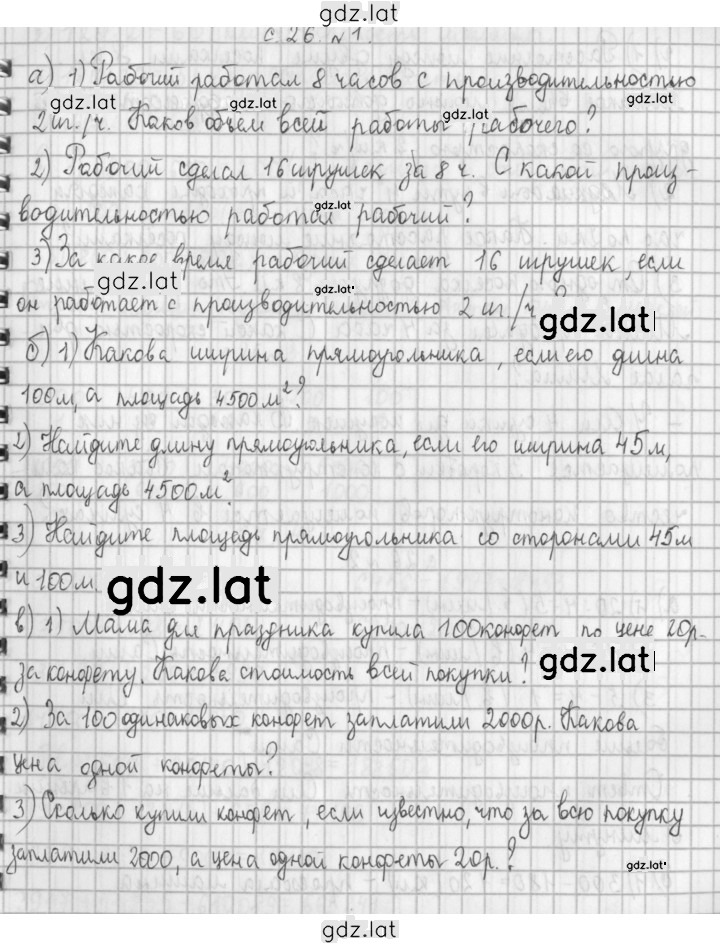 gdz.lat
с. 26. №1.
а) 1) Рабочий работал 8 часов с производительностью
gdz.lat gdz.lat gdz.lat gdz.lat
2 шт./ч. Каков объём всей работы рабочего?
2) Рабочий сделал 16 игрушек за 8 ч. С какой произ-
gdz.lat
водительностью работал рабочий?
3) За какое время рабочий сделает 16 игрушек, если
gdz.lat gdz.lat
он работает с производительностью 2 шт./ч. ?
gdz.lat
б) 1) Какова ширина прямоугольника, если его длина
100м, а площадь 4500м²?
2) Найдите длину прямоугольника, если его ширина 45м,
а площадь 4500м².
3) Найдите площадь прямоугольника со сторонами 45м
и 100м.
gdz.lat
в) 1) Мама для праздника купила 100 конфет по цене 20р.
за конфету. Какова стоимость всей покупки?
gdz.lat
2) За 100 одинаковых конфет заплатили 2000р. Какова
цена одной конфеты?
3) Сколько купили конфет, если известно, что за всю покупку
заплатили 2000, а цена одной конфеты 20р.?
gdz.lat
gdz.lat